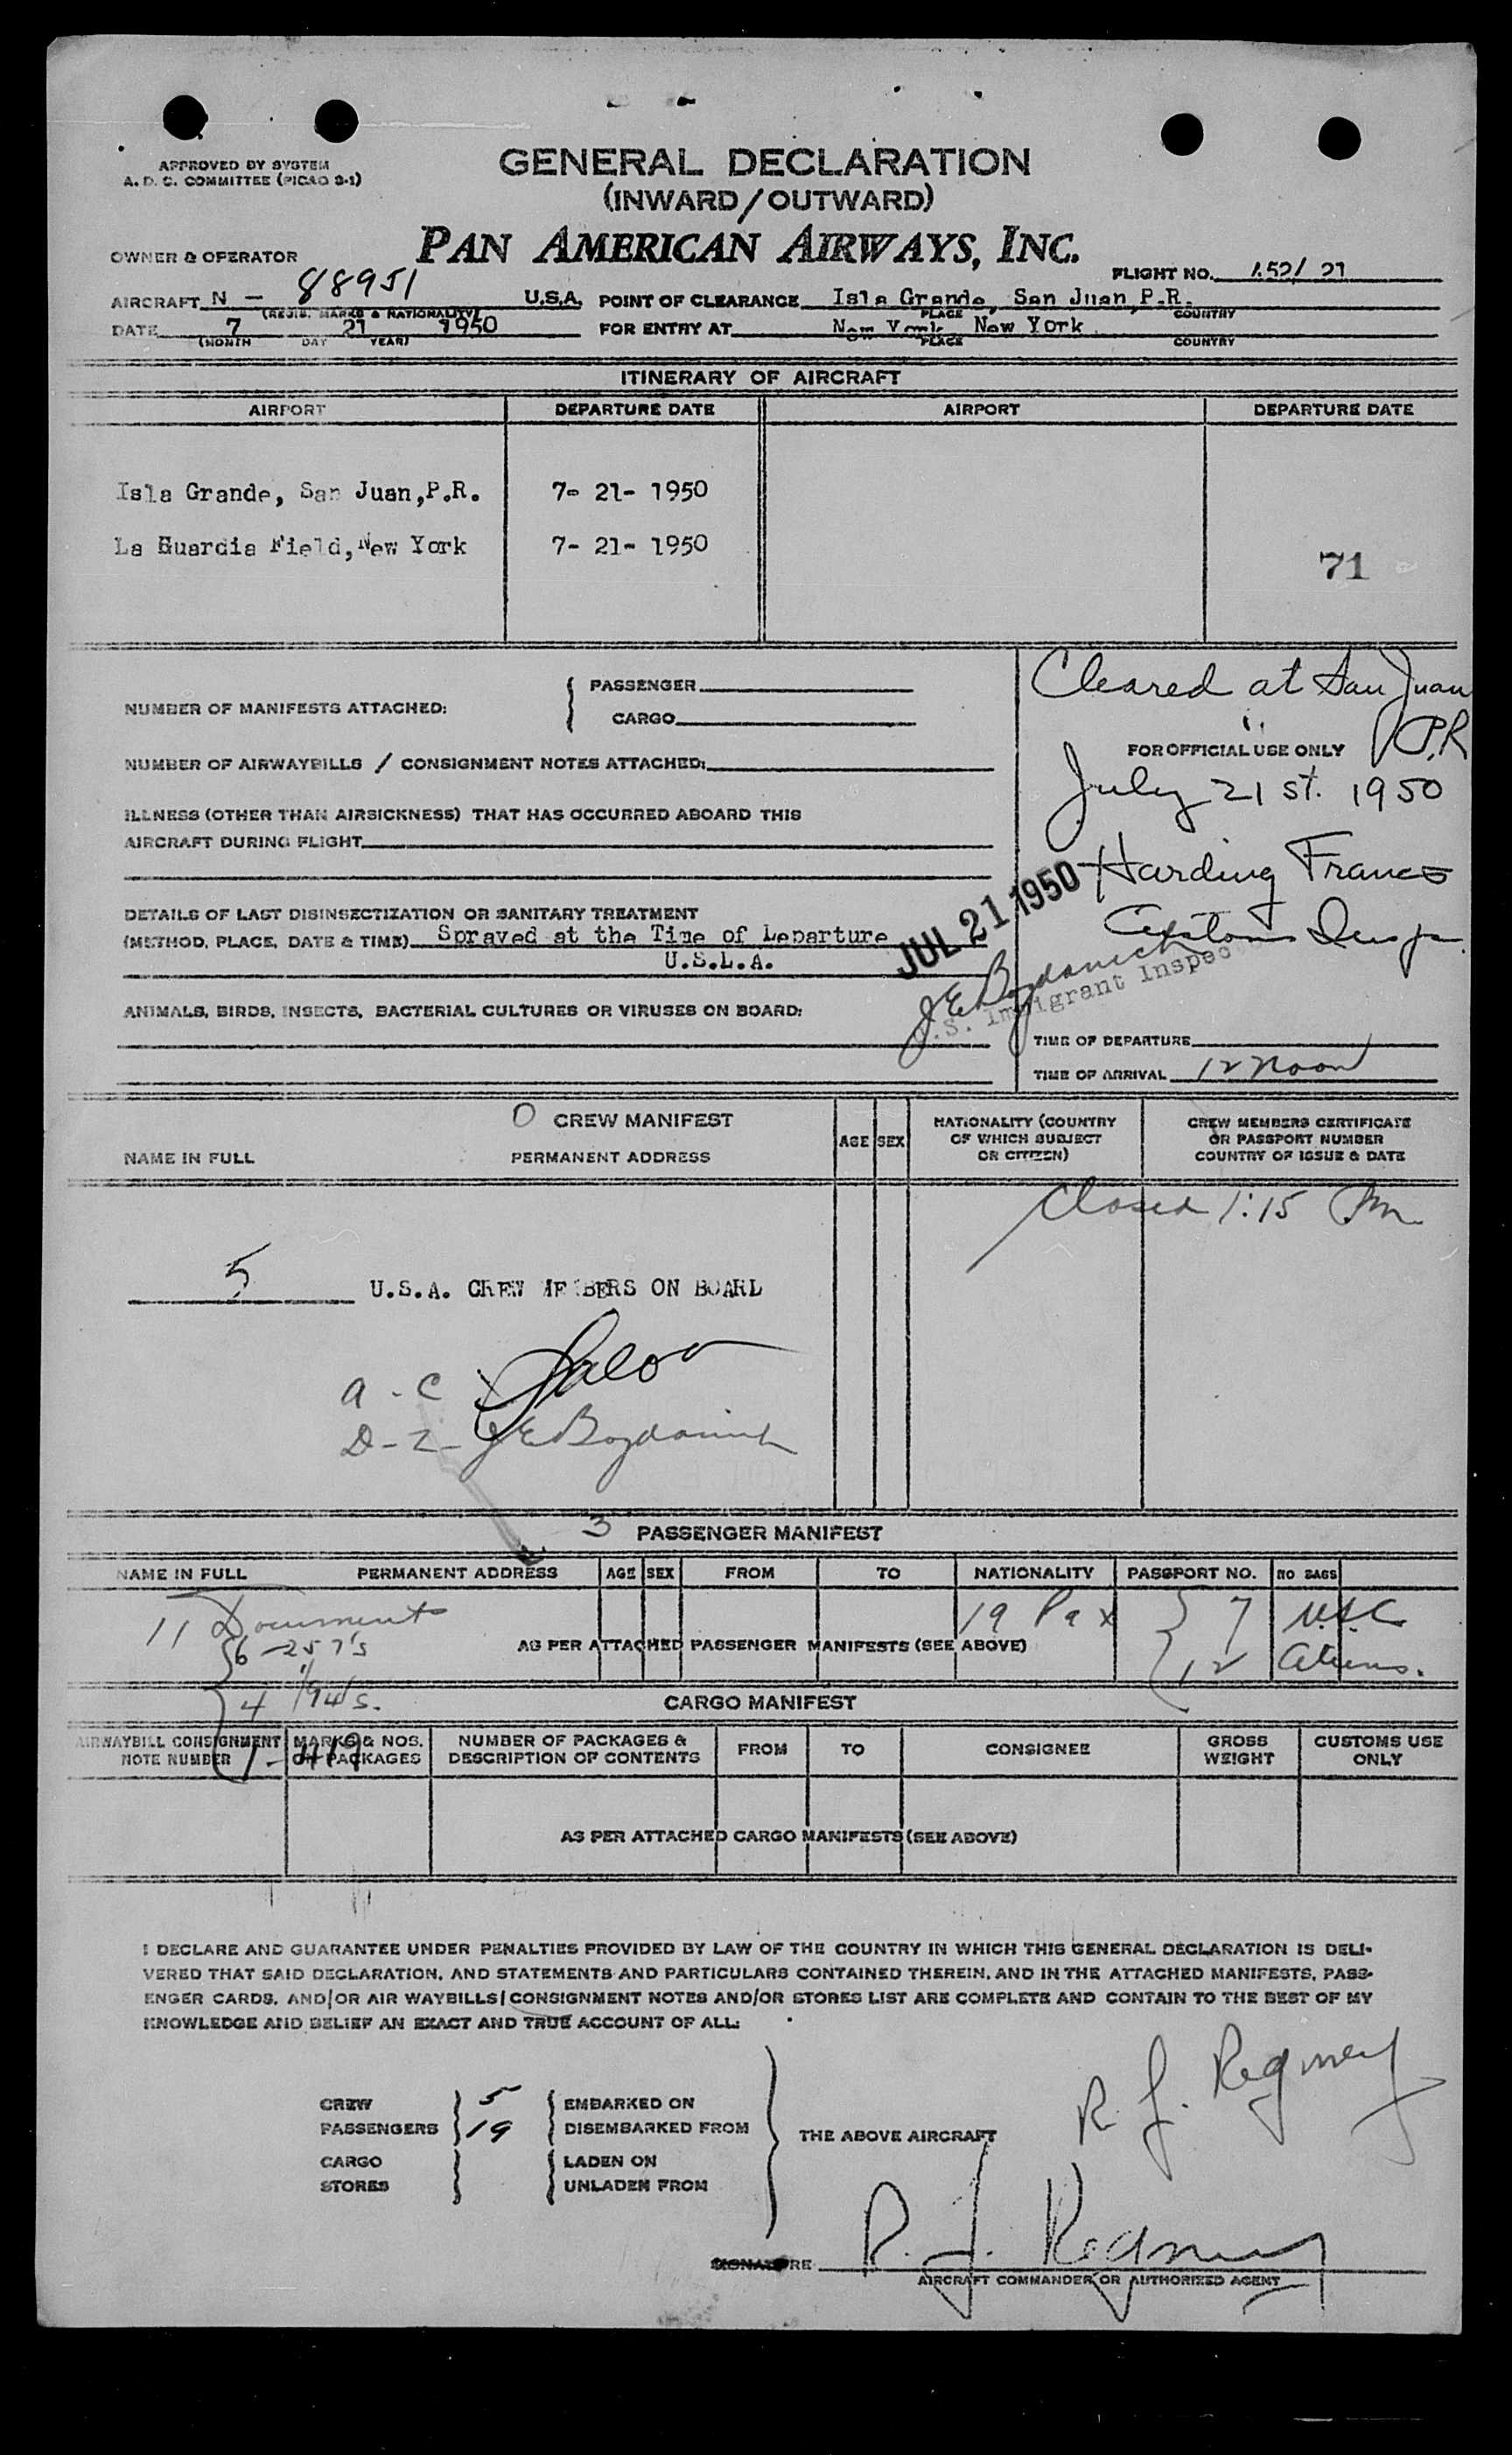 APPROVED BY SYSTEM
A. D. C. COMMITTEE (PICAO 9-1)
GENERAL DECLARATION
(INWARD/OUTWARD)
PAN AMERICAN AIRWAYS, INC.
OWNER & OPERATOR
FLIGHT NO. 452/ 21
AIRCRAFT N - 88951 U.S.A. POINT OF CLEARANCE Isla Grande, San Juan,P.R.
(REGIS. MARKS & NATIONALITY) PLACE COUNTRY
DATE 7 21 1950 FOR ENTRY AT New York, New York
(MONTH DAY YEAR) PLACE COUNTRY
ITINERARY OF AIRCRAFT
AIRPORT DEPARTURE DATE AIRPORT DEPARTURE DATE
Isla Grande, San Juan,P.R. 7- 21- 1950
La Guardia Field, New York 7- 21- 1950
71
Cleared at San Juan
P.R
NUMBER OF MANIFESTS ATTACHED: { PASSENGER
CARGO
FOR OFFICIAL USE ONLY
NUMBER OF AIRWAYBILLS / CONSIGNMENT NOTES ATTACHED:
July 21 st. 1950
ILLNESS (OTHER THAN AIRSICKNESS) THAT HAS OCCURRED ABOARD THIS
AIRCRAFT DURING FLIGHT
Harding Franco
Customs Insp.
DETAILS OF LAST DISINSECTIZATION OR SANITARY TREATMENT
(METHOD, PLACE, DATE & TIME) Sprayed at the Time of Departure
U.S.L.A.
JUL 21 1950
J E Bogdanich
U.S. Immigrant Inspec
ANIMALS, BIRDS, INSECTS, BACTERIAL CULTURES OR VIRUSES ON BOARD:
TIME OF DEPARTURE
TIME OF ARRIVAL 12 Noon
0 CREW MANIFEST
NAME IN FULL PERMANENT ADDRESS AGE SEX NATIONALITY (COUNTRY OF WHICH SUBJECT OR CITIZEN) CREW MEMBERS CERTIFICATE OR PASSPORT NUMBER COUNTRY OF ISSUE & DATE
Closed 1:15 Pm
5 U.S.A. CREW MEMBERS ON BOARD
a - C
D - 2 - J E Bogdanich
3 PASSENGER MANIFEST
NAME IN FULL PERMANENT ADDRESS AGE SEX FROM TO NATIONALITY PASSPORT NO. NO BAGS
11 Documents 19 Pax { 7 U.S.C
{ 6 - 257's AS PER ATTACHED PASSENGER MANIFESTS (SEE ABOVE) { 12 Aliens.
4 1/94's.
CARGO MANIFEST
1 - 419
AIRWAYBILL CONSIGNMENT NOTE NUMBER MARKS & NOS. ON PACKAGES NUMBER OF PACKAGES & DESCRIPTION OF CONTENTS FROM TO CONSIGNEE GROSS WEIGHT CUSTOMS USE ONLY
AS PER ATTACHED CARGO MANIFESTS (SEE ABOVE)
I DECLARE AND GUARANTEE UNDER PENALTIES PROVIDED BY LAW OF THE COUNTRY IN WHICH THIS GENERAL DECLARATION IS DELI-
VERED THAT SAID DECLARATION, AND STATEMENTS AND PARTICULARS CONTAINED THEREIN, AND IN THE ATTACHED MANIFESTS, PASS-
ENGER CARDS, AND/OR AIR WAYBILLS/CONSIGNMENT NOTES AND/OR STORES LIST ARE COMPLETE AND CONTAIN TO THE BEST OF MY
KNOWLEDGE AND BELIEF AN EXACT AND TRUE ACCOUNT OF ALL:
CREW } 5 { EMBARKED ON
PASSENGERS } 19 { DISEMBARKED FROM
THE ABOVE AIRCRAFT
CARGO } { LADEN ON
STORES } { UNLADEN FROM
R. J.
SIGNATURE R. J.
AIRCRAFT COMMANDER OR AUTHORIZED AGENT